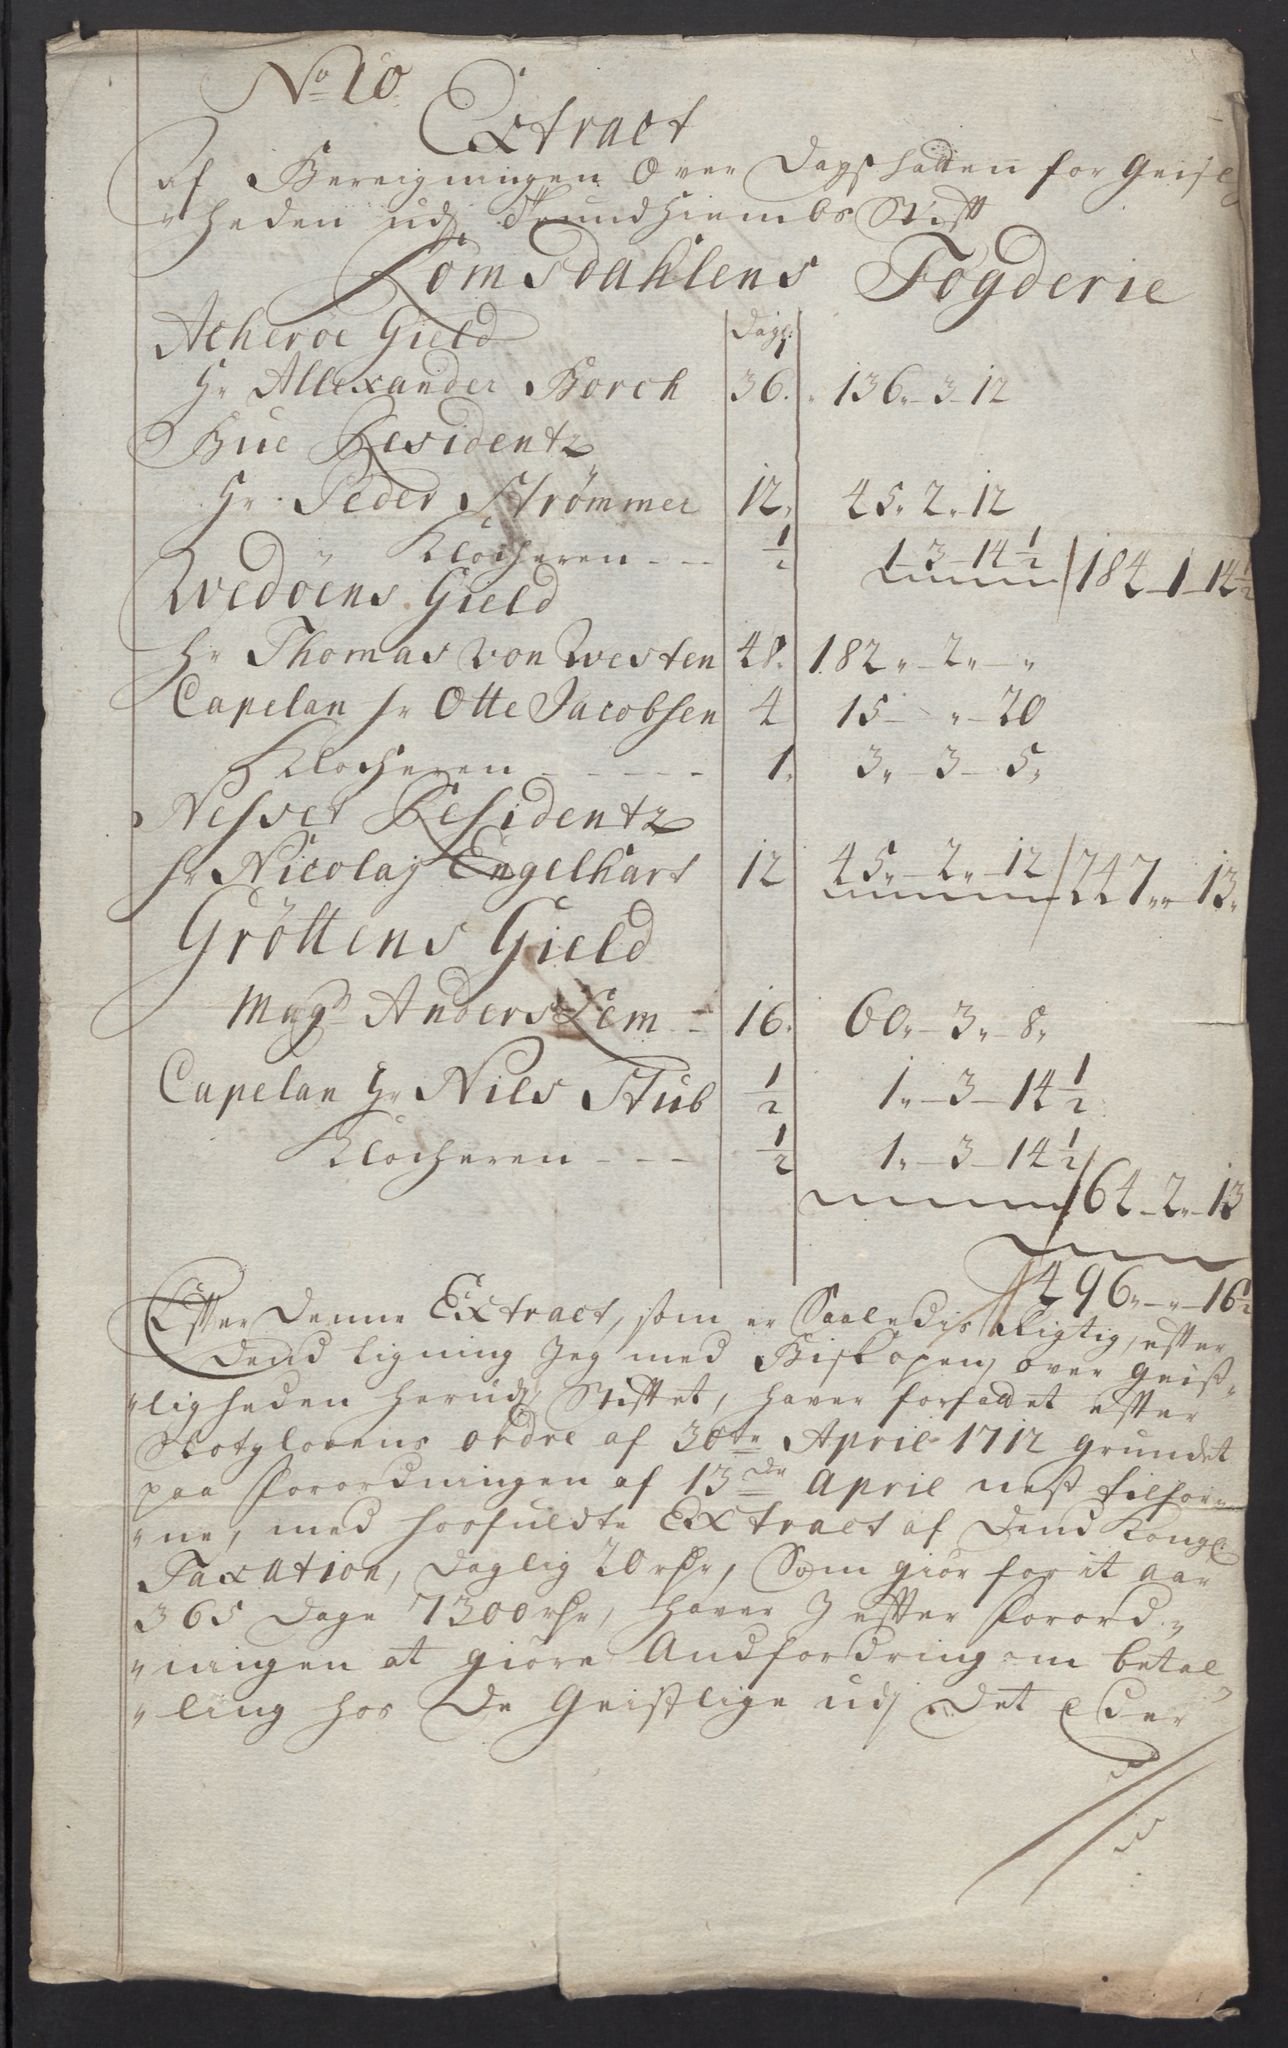 No 10
Extract
Af Bereigningen Over Dagskatten for Geistl
"heden udj Trundhiembs Stift
Romsdahlens Fogderie
Acheröe Gield Dage:
Hr Allexander Borch 36. 136"-3-12
Bue Residentz
Hr Peder Strömmer 12" 45" 2" 12
Klocheren - - - ½ 1-3-14½ / 184-1-14½
Wedöens Gield
Hr Thomas von Westen 48" 182"-2"-"
Capelan hr Otte Jacobsen 4 15- "-20
Klocheren - - - - - 1" 3"-3-5"
Nesset Residentz
hr Nicolaj Engelhart 12 45"-2"-12 / 247"-"-13"
Gröttens Gield
Magr Anders Lem - 16" 60"-3"-8"
Capelan Hr Nils Stub ½ 1"-3-14½
Klocheren - - - ½ 1"-3-14½
/ 64-2"-13
496"-"-16½
Efter denne Extract, som er Saaledis Rigtig, efter
dend ligning Jeg med Biskopen over Geist"
"ligheden herudj Stiftet, haver forfattet efter
Slotzlovens ordre af 30te April 1712 grundet
paa Forordningen af 13de April nest tilfor"
"ne, med hosfuldte Extract af dend Kongl:
Taxation, daglig 20 rdr, Som giör for it aar
365 dage 7300 rdr, haver J efter Forord"
"ningen at giöre Andfordring om betal"
"ling hos de Geistlige udj det Eder